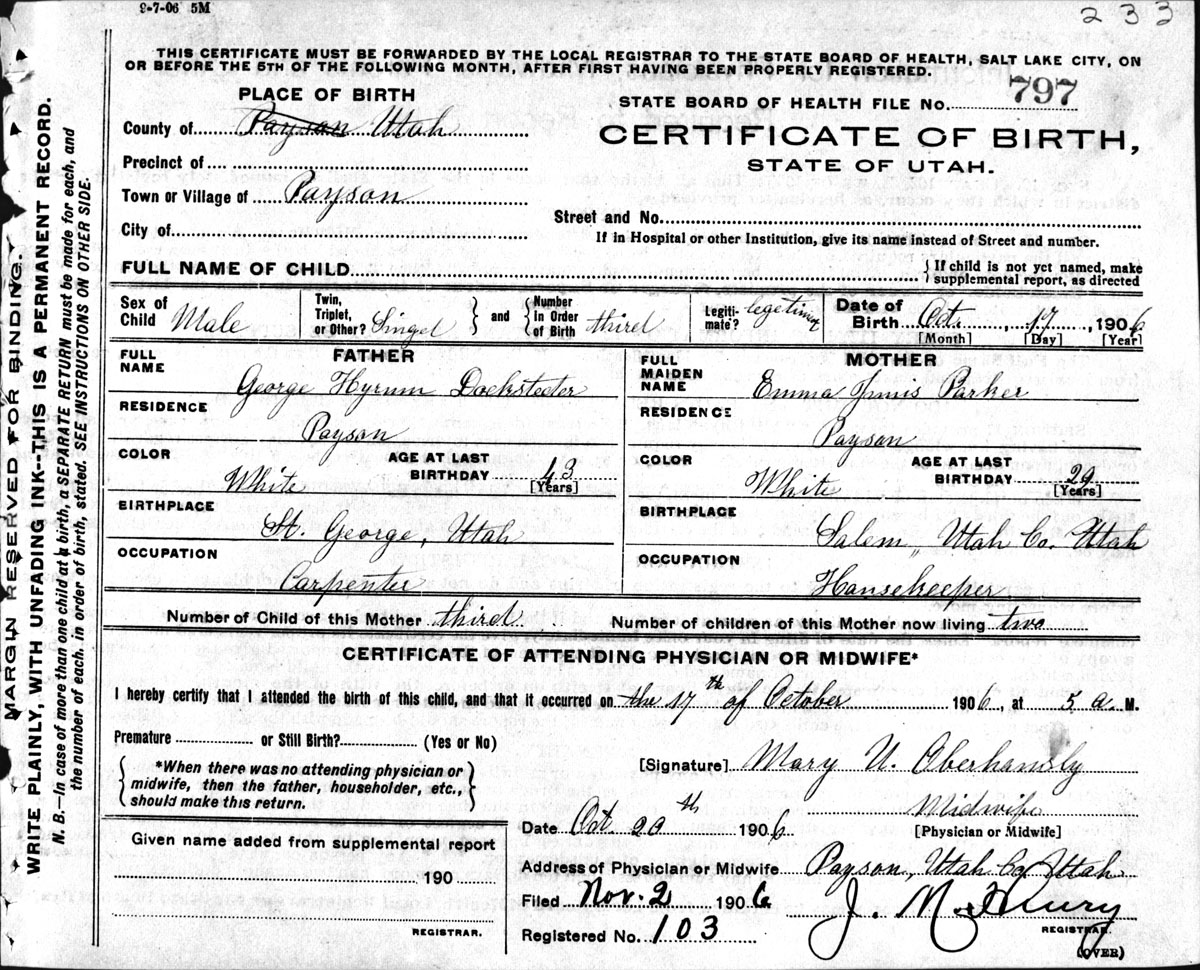 9-7-06 5M
233
THIS CERTIFICATE MUST BE FORWARDED BY THE LOCAL REGISTRAR TO THE STATE BOARD OF HEALTH, SALT LAKE CITY, ON
OR BEFORE THE 5TH OF THE FOLLOWING MONTH, AFTER FIRST HAVING BEEN PROPERLY REGISTERED.
PLACE OF BIRTH
STATE BOARD OF HEALTH FILE NO. 797
County of Payson Utah
CERTIFICATE OF BIRTH,
STATE OF UTAH.
Precinct of
Town or Village of Payson
Street and No.
City of
If in Hospital or other Institution, give its name instead of Street and number.
FULL NAME OF CHILD
{ If child is not yet named, make
supplemental report, as directed
Sex of Child Male
Twin, Triplet, or Other? Singel
and
Number in Order of Birth third
Legiti-mate? legetimy
Date of Birth Oct. 17, 1906
[Month] [Day] [Year]
FATHER
FULL NAME
George Hyrum Docksteeter
RESIDENCE
Payson
COLOR
White
AGE AT LAST BIRTHDAY 43
[Years]
BIRTHPLACE
St. George, Utah
OCCUPATION
Carpenter
MOTHER
FULL MAIDEN NAME
Emma Parker
RESIDENCE
Payson
COLOR
White
AGE AT LAST BIRTHDAY 29
[Years]
BIRTHPLACE
Salem, Utah Co. Utah
OCCUPATION
Hansekeeper
Number of Child of this Mother third
Number of children of this Mother now living two
CERTIFICATE OF ATTENDING PHYSICIAN OR MIDWIFE*
I hereby certify that I attended the birth of this child, and that it occurred on the 17th of October 1906, at 5 a. M.
Premature or Still Birth? (Yes or No)
*When there was no attending physician or
midwife, then the father, householder, etc.,
should make this return.
[Signature] Mary U. Oberhansly
Midwife
[Physician or Midwife]
Date Oct 20th 1906
Given name added from supplemental report
190
REGISTRAR.
Address of Physician or Midwife Payson, Utah Co Utah
Filed Nov. 2 1906
J. M.
REGISTRAR.
Registered No. 103
(OVER)
MARGIN RESERVED FOR BINDING.
WRITE PLAINLY, WITH UNFADING INK--THIS IS A PERMANENT RECORD.
N. B.—In case of more than one child at a birth, a SEPARATE RETURN must be made for each, and
the number of each, in order of birth, stated. SEE INSTRUCTIONS ON OTHER SIDE.